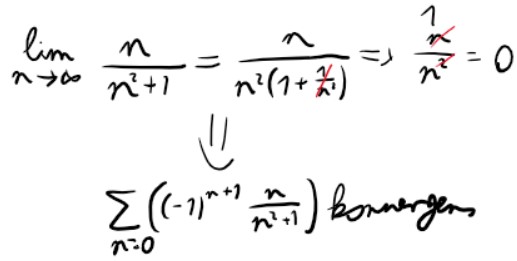 lim n→∞ n/(n²+1) = n/(n²(1+1/n²)) => 1n/n² = 0
⇓
∑ n=0 ((-1)^(n+1) n/(n²+1)) konvergens